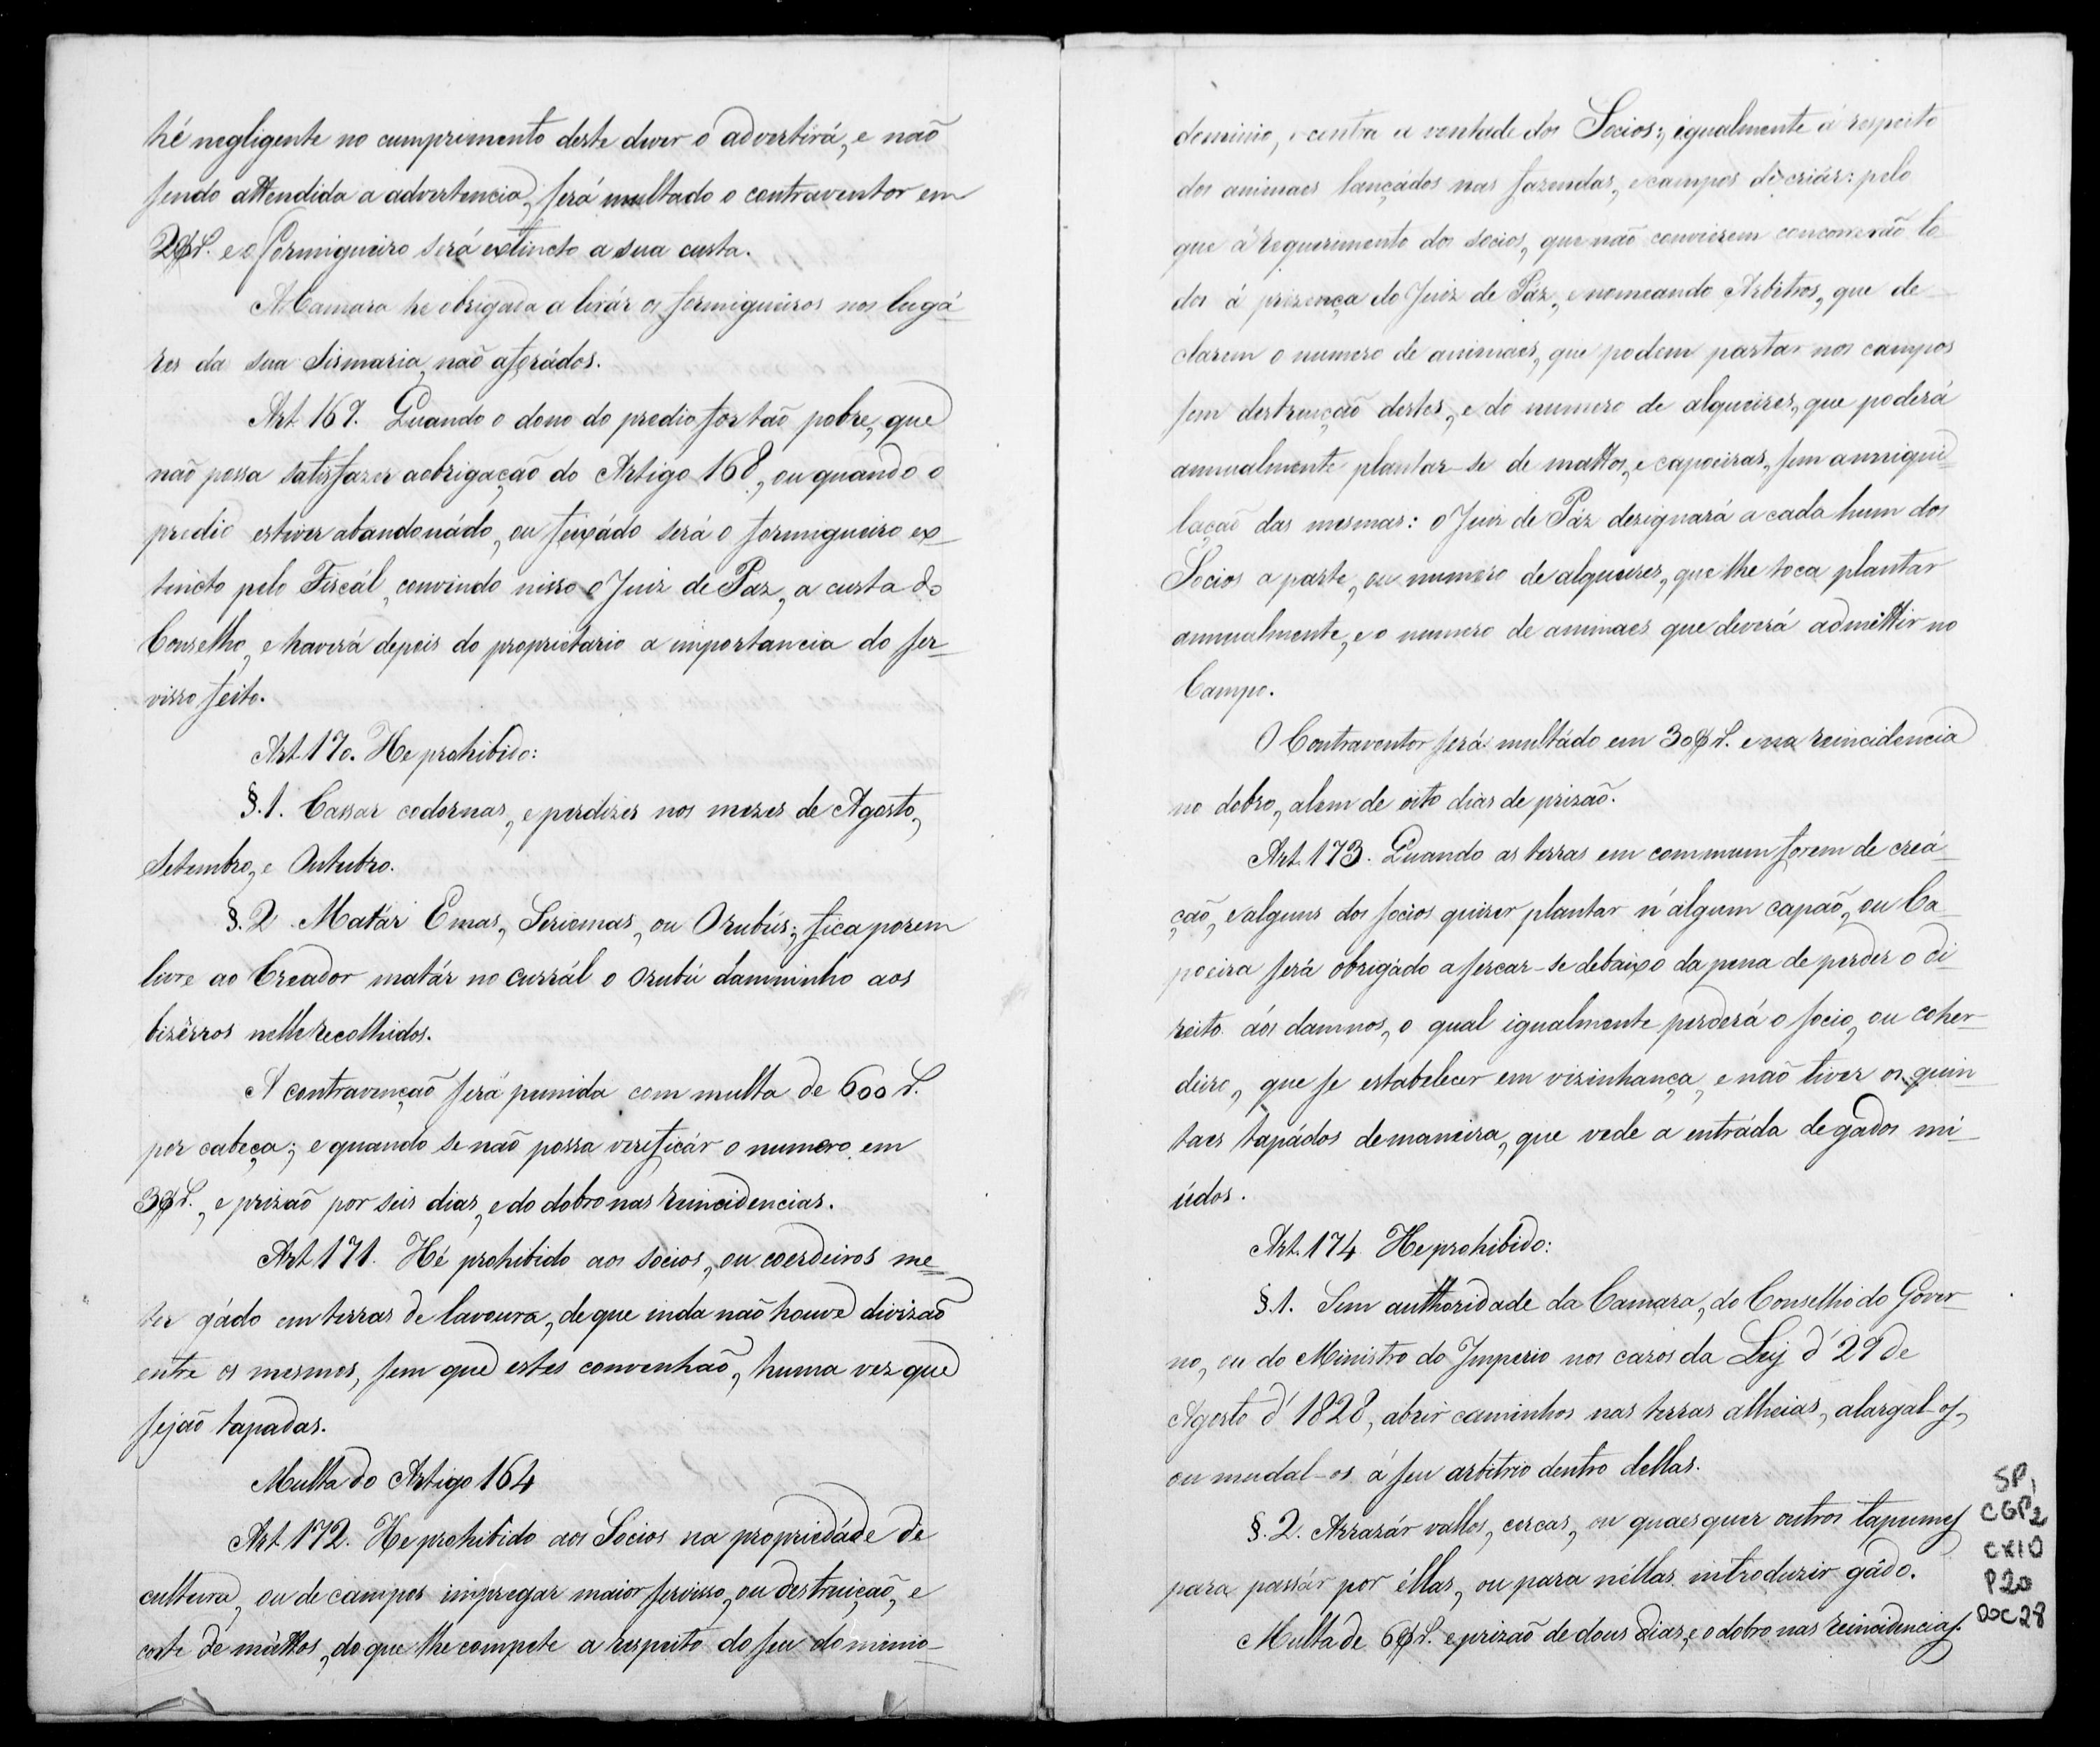 hé negligente no cumprimento deste dever o advertirá, e não
sendo attendida a advertencia, será multado o contraventor em
2$r. e o formigueiro será extincto a sua custa.
A Camara he obrigada a tirár os formigueiros nos lugá-
res da sua Sismaria, não aforádos.
Art. 169. Quando o dono do predio for tão pobre, que
não possa satisfazer a obrigação do Artigo 168, ou quando o
predio estiver abandonádo, ou feixádo será o formigueiro ex-
tincto pelo Fiscál, convindo nisso o Juiz de Paz, a custa do
Conselho, e haverá depois do proprietario a importancia do ser-
visso feito.
Art. 170. He prohibido:
§. 1. Cassar codornas, e perdizes nos mezes de Agosto,
Setembro, e Outubro.
§. 2. Matár Emas, Seriemas, ou Orubús; fica porem
livre ao Creador matár no currál o Orubú damninho aos
bizêrros nelle recolhidos.
A contravenção será punida com multa de 600 r.
por cabeça; e quando se não possa verificár o numero em
3$r., e prizão por seis dias, e do dobro nas reincidencias.
Art. 171. Hé prohibido aos socios, ou coerdeiros me-
ter gádo em terras de lavoura, de que inda não houve divizão
entre os mesmos, sem que estes convenhão, huma vez que
sejão tapadas.
Multa do Artigo 164
Art. 172. He prohibido aos Socios na propriedáde de
cultura, ou de campos impregar maior servisso, ou destruição, e
corte de máttos, do que lhe compete a respeito do seu dominio-
dominio, e contra a vontade dos Socios; igualmente á respeito
dos animaes lançádos nas fazendas, e campos de criár: pelo
que á requerimento dos socios, que não convierem concorrerão to-
dos á prizença do Juiz de Páz, e nomeando Arbitros, que de-
clarem o numero de animaes, que podem pastar nos campos
sem destruição destes, e do numero de alqueires, que poderá
annualmente plantar-se de mattos, e capoeiras, sem anniqui-
lação das mesmas: o Juiz de Páz dezignará a cada hum dos
Socios a parte, ou numero de alqueires, que lhe toca plantar
annualmente, e o numero de animaes que deverá admittir no
Campo.
O Contraventor será multádo em 30$r. e na reincidencia
no dobro, alem de oito dias de prizão.
Art. 173. Quando as terras em commum forem de creá-
ção, e alguns dos socios quizer plantar n'algum capão, ou Ca-
poeira será obrigádo a sercar-se debaixo da pena de perder o di-
reito aos damnos, o qual igualmente perderá o socio, ou coher-
deiro, que se estabelecer em vizinhança, e não tiver os quin-
taes tapádos de maneira, que vede a entráda de gados mi-
údos.
Art. 174. He prohibido:
§. 1. Sem authoridade da Camara, do Conselho do Gover-
no, ou do Ministro do Imperio nos cazos da Ley d' 29 de
Agosto d' 1828, abrir caminhos nas terras alheias, alargal-os,
ou mudal-os á seu arbitrio dentro dellas.
§. 2. Arrazár vallos, cercas, ou quaes quer outros tapumes
para passár por éllas, ou para néllas introduzir gádo.
Multa de 6$r. e prizão de dous dias, e o dobro nas reincidencias.
SP1
CGP2
CX10
P20
DOC28